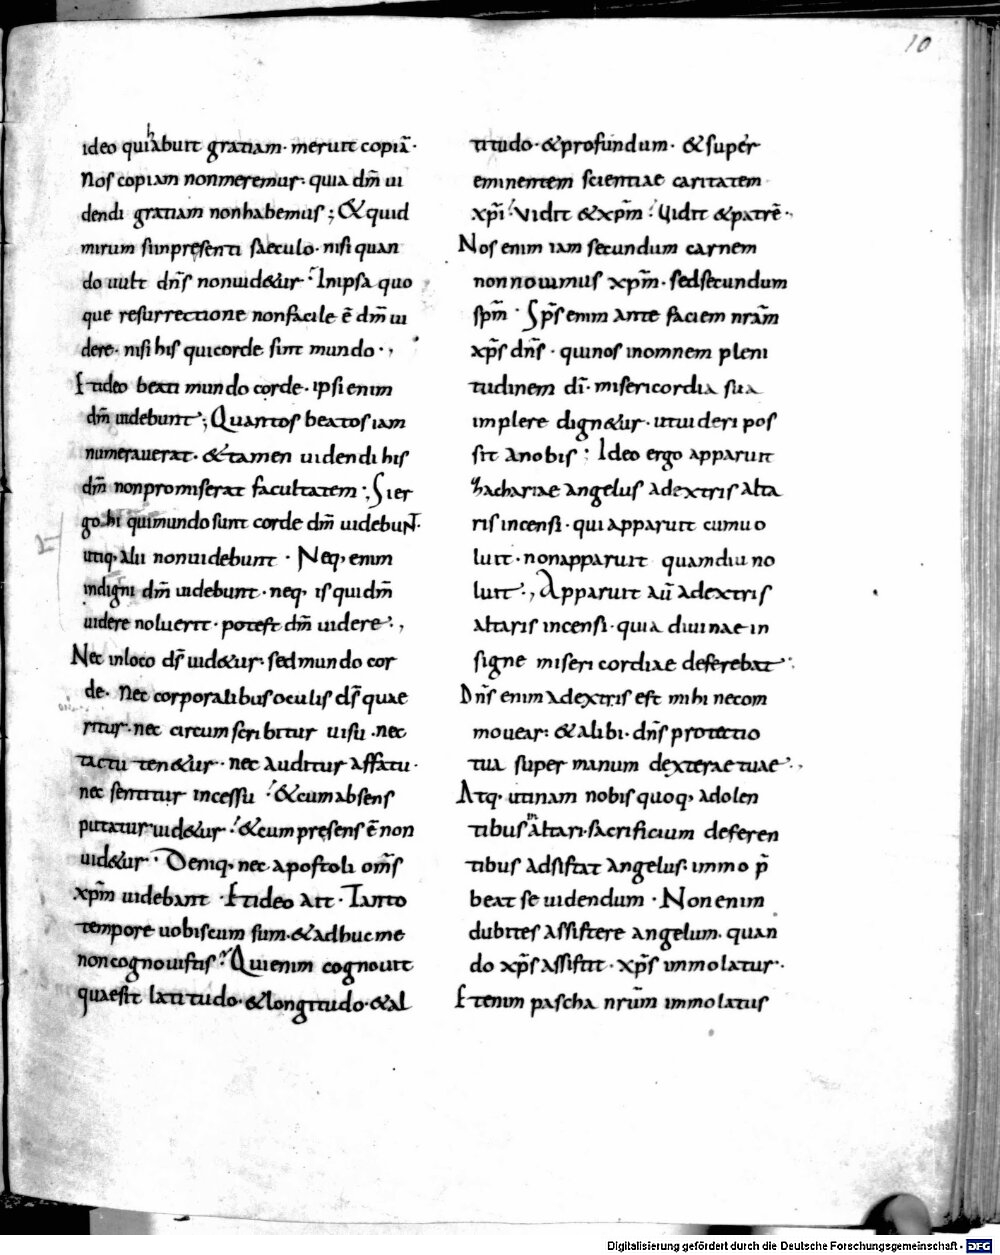 10
ideo qui habuit gratiam· meruit copiā·
Nos copiam non meremur· quia dm̄ ui
dendi gratiam non habemus; & quid
mirum si in presenti saeculo· nisi quan
do uult dn̄s non uid&ur· In ipsa quo
que resurrectione non facile ē dm̄ ui
dere· nisi his qui corde sunt mundo·,
Et ideo beati mundo corde· ipsi enim
dm̄ uidebunt·; Quantos beatos iam
numerauerat· & tamen uidendi his
dm̄ non promiserat facultatem·, Si er
go hi qui mundo sunt corde dm̄ uidebunt·
utiq· alii non uidebunt· Neq· enim
indigni dm̄ uidebunt· neq· is qui dm̄
uidere noluerit· potest dm̄ uidere·,
Nec in loco ds̄ uid&ur· sed mundo cor
de· Nec corporalibus oculis ds̄ quae
ritur· nec circumscribitur uisu· nec
tactu ten&ur· nec auditur affatu·
nec sentitur incessu· & cum absens
putatur uid&ur· & cum presens ē non
uid&ur· Deniq· nec apostoli om̄s
xp̄m uidebant· Et ideo ait· Tanto
tempore uobiscum sum· & adhuc me
non cognouistis· Qui enim cognouit
quae sit latitudo· & longitudo· & al
titudo· & profundum· & super
eminentem scientiae caritatem
xp̄i· Vidit & xp̄m· Vidit & patrē·,
Nos enim iam secundum carnem
non nouimus xp̄m· sed secundum
sp̄m· Sp̄s enim ante faciem nr̄am
xp̄s dn̄s· qui nos in omnem pleni
tudinem dī· misericordia sua
implere dign&ur· ut uideri pos
sit a nobis· Ideo ergo apparuit
Zachariae angelus a dextris alta
ris incensi· qui apparuit cum uo
luit· non apparuit quamdiu no
luit·, Apparuit aū a dextris
altaris incensi· quia diuinae in
signe misericordiae deferebat·
Dn̄s enim a dextris est mihi ne com
mouear· & alibi· dn̄s protectio
tua super manum dexterae tuae·,
Atq· utinam nobis quoq· adolen
tibus altari· sacrificium deferen
tibus adsistat angelus· immo p̄
beat se uidendum· Non enim
dubites assistere angelum· quan
do xp̄s assistit· xp̄s immolatur·
Etenim pascha nr̄um immolatus
Digitalisierung gefördert durch die Deutsche Forschungsgemeinschaft - DFG